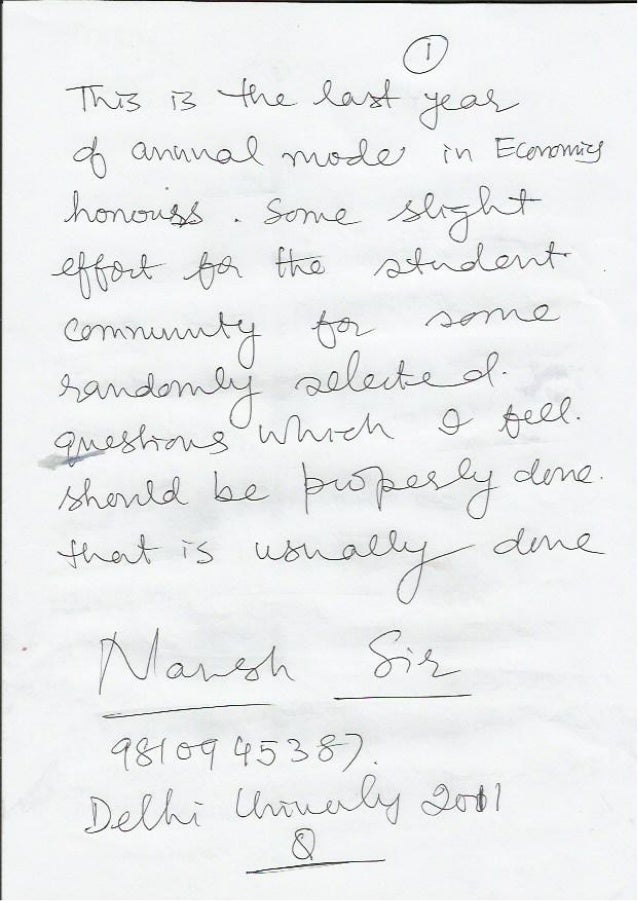 1
This is the last year
of annual mode in Economics
honours. Some slight
effort for the student
community for some
randomly selected.
questions which I feel.
should be properly done.
that is usually done
Sir
9810945387.
Delhi University 2011